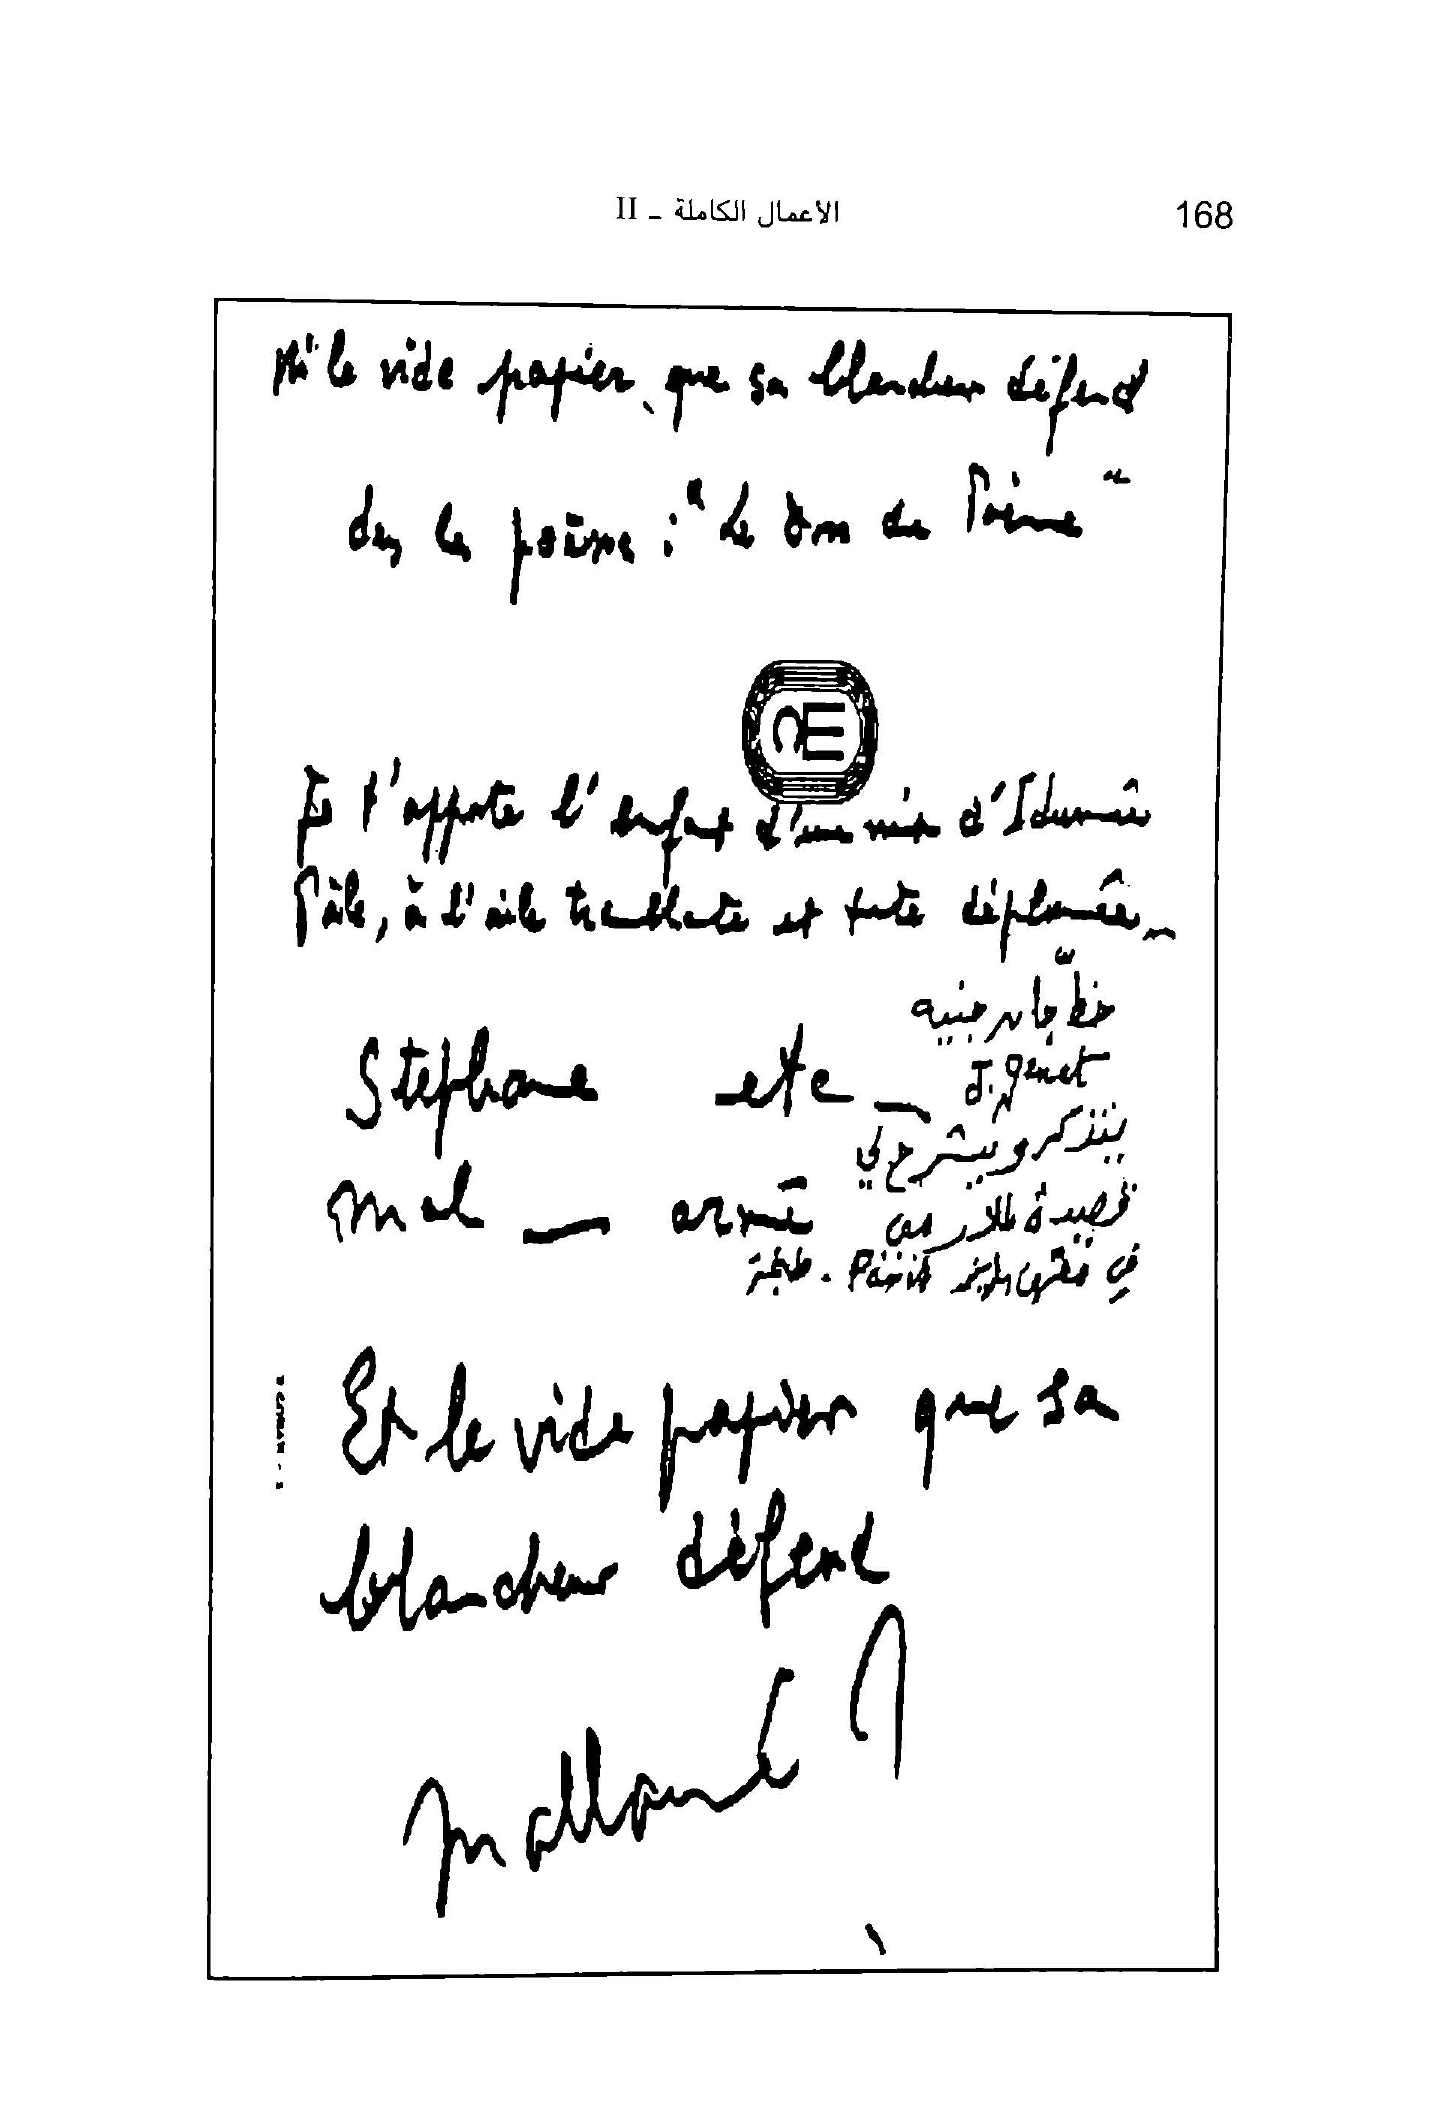 168
الأعمال الكاملة ـ II
Ni le vide papier, que sa blancheur défend
des les poème : "Le Don du Poème"
Je t'apporte l'enfant d'une nuit d'Idumée
Pâle, à l'aile tremblante et toute déplumée
خطّ جان جنيه
J. Genet
يتذكر ويشرح لي
قصيدة مالارميه
Stephane etc
Mal — armé
في مقهى Paris طنجة
Et le vide papier que sa
blancheur défend
Mallarmé